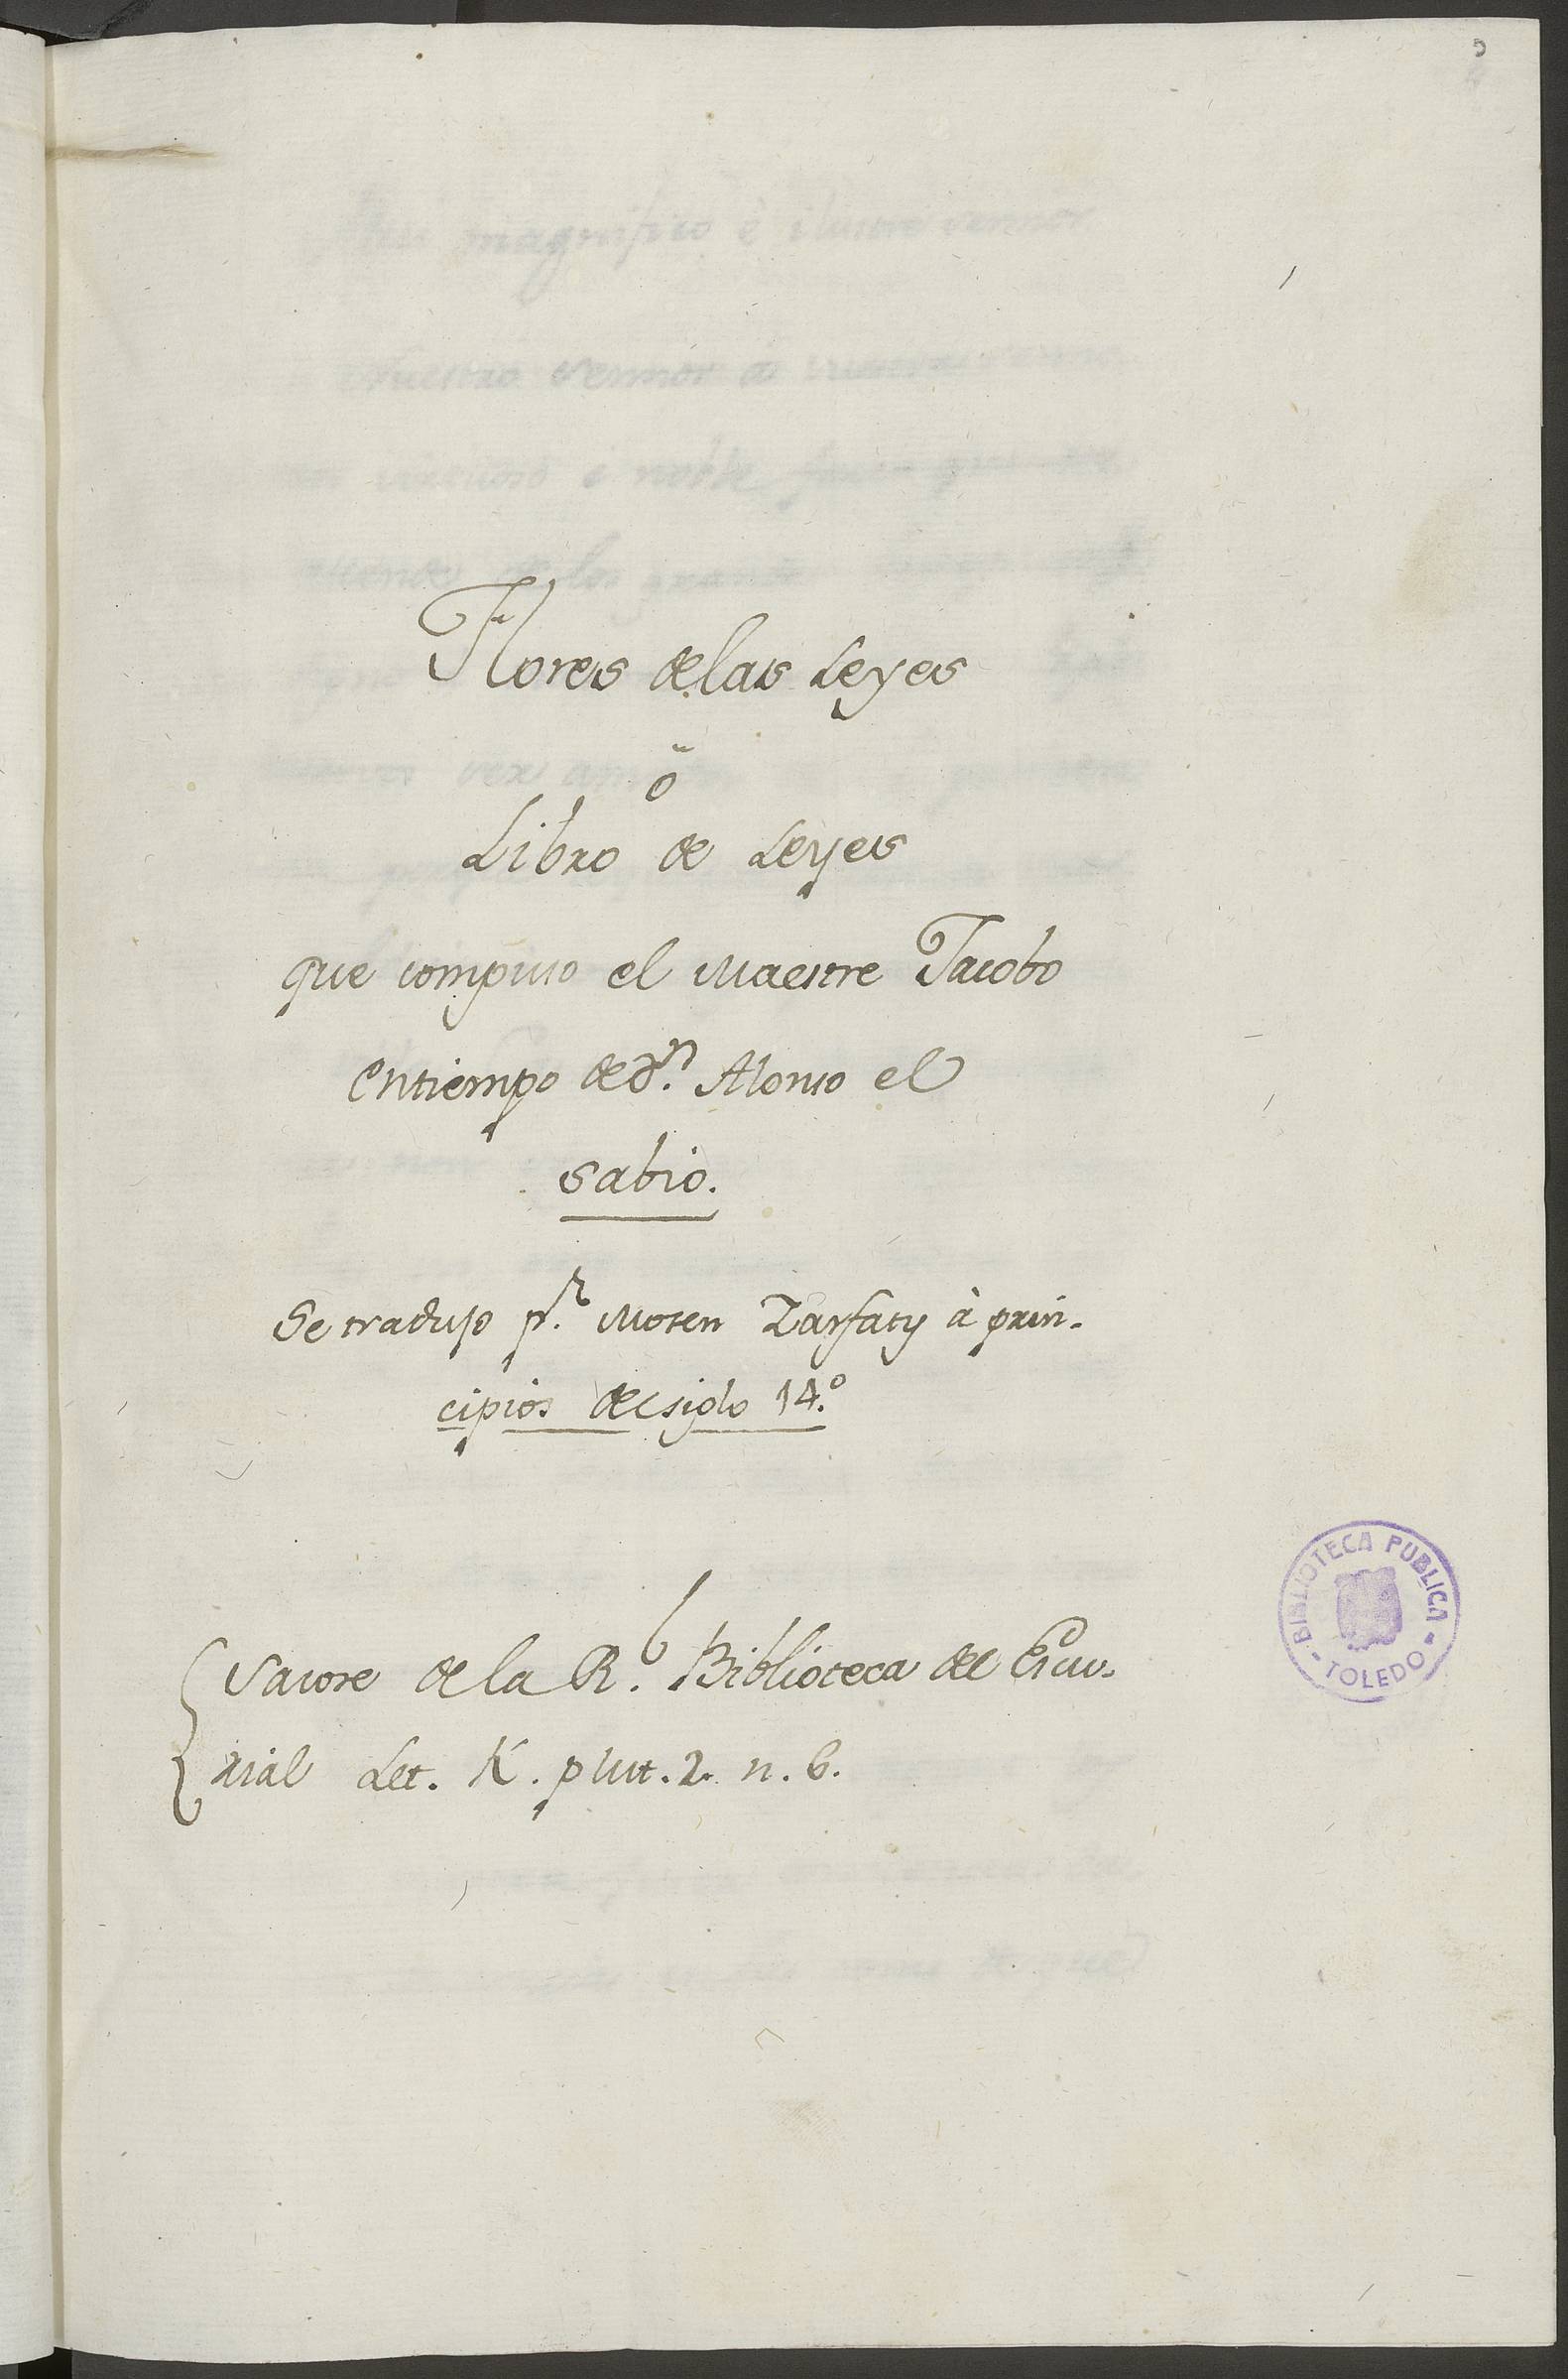 5
Flores delas Leyes
ō
Libro de Leyes
que compuso el Maestre Jacobo
entiempo de dn. Alonso el
sabio.
Se tradujo pr. Mosen Zarfaty à prin-
cipios del siglo 14.º
Sacose de la Rl. Biblioteca del Escu-
rial Let. K. plut. 2. n. 6.
BIBLIOTECA PUBLICA
- TOLEDO -